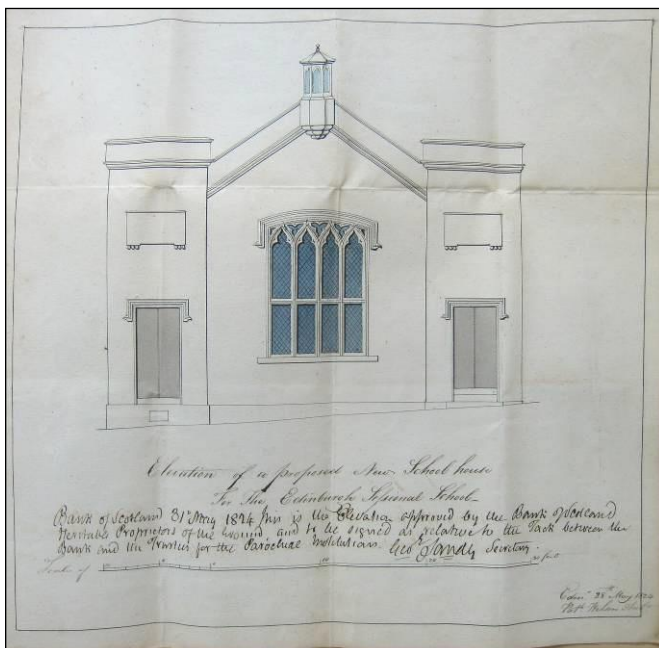 Elevation of a proposed New School house
For the Edinburgh Sessional School
Bank of Scotland 31st May 1824 This is the Elevation approved by the Bank of Scotland
Heritable Proprietors of the Ground, and to be signed as relative to the Tack between the
Bank and the Trustees for the Parochial Institutions. Geo. Sandy Secretary.
Scale of feet
Edinr 28th May 1824